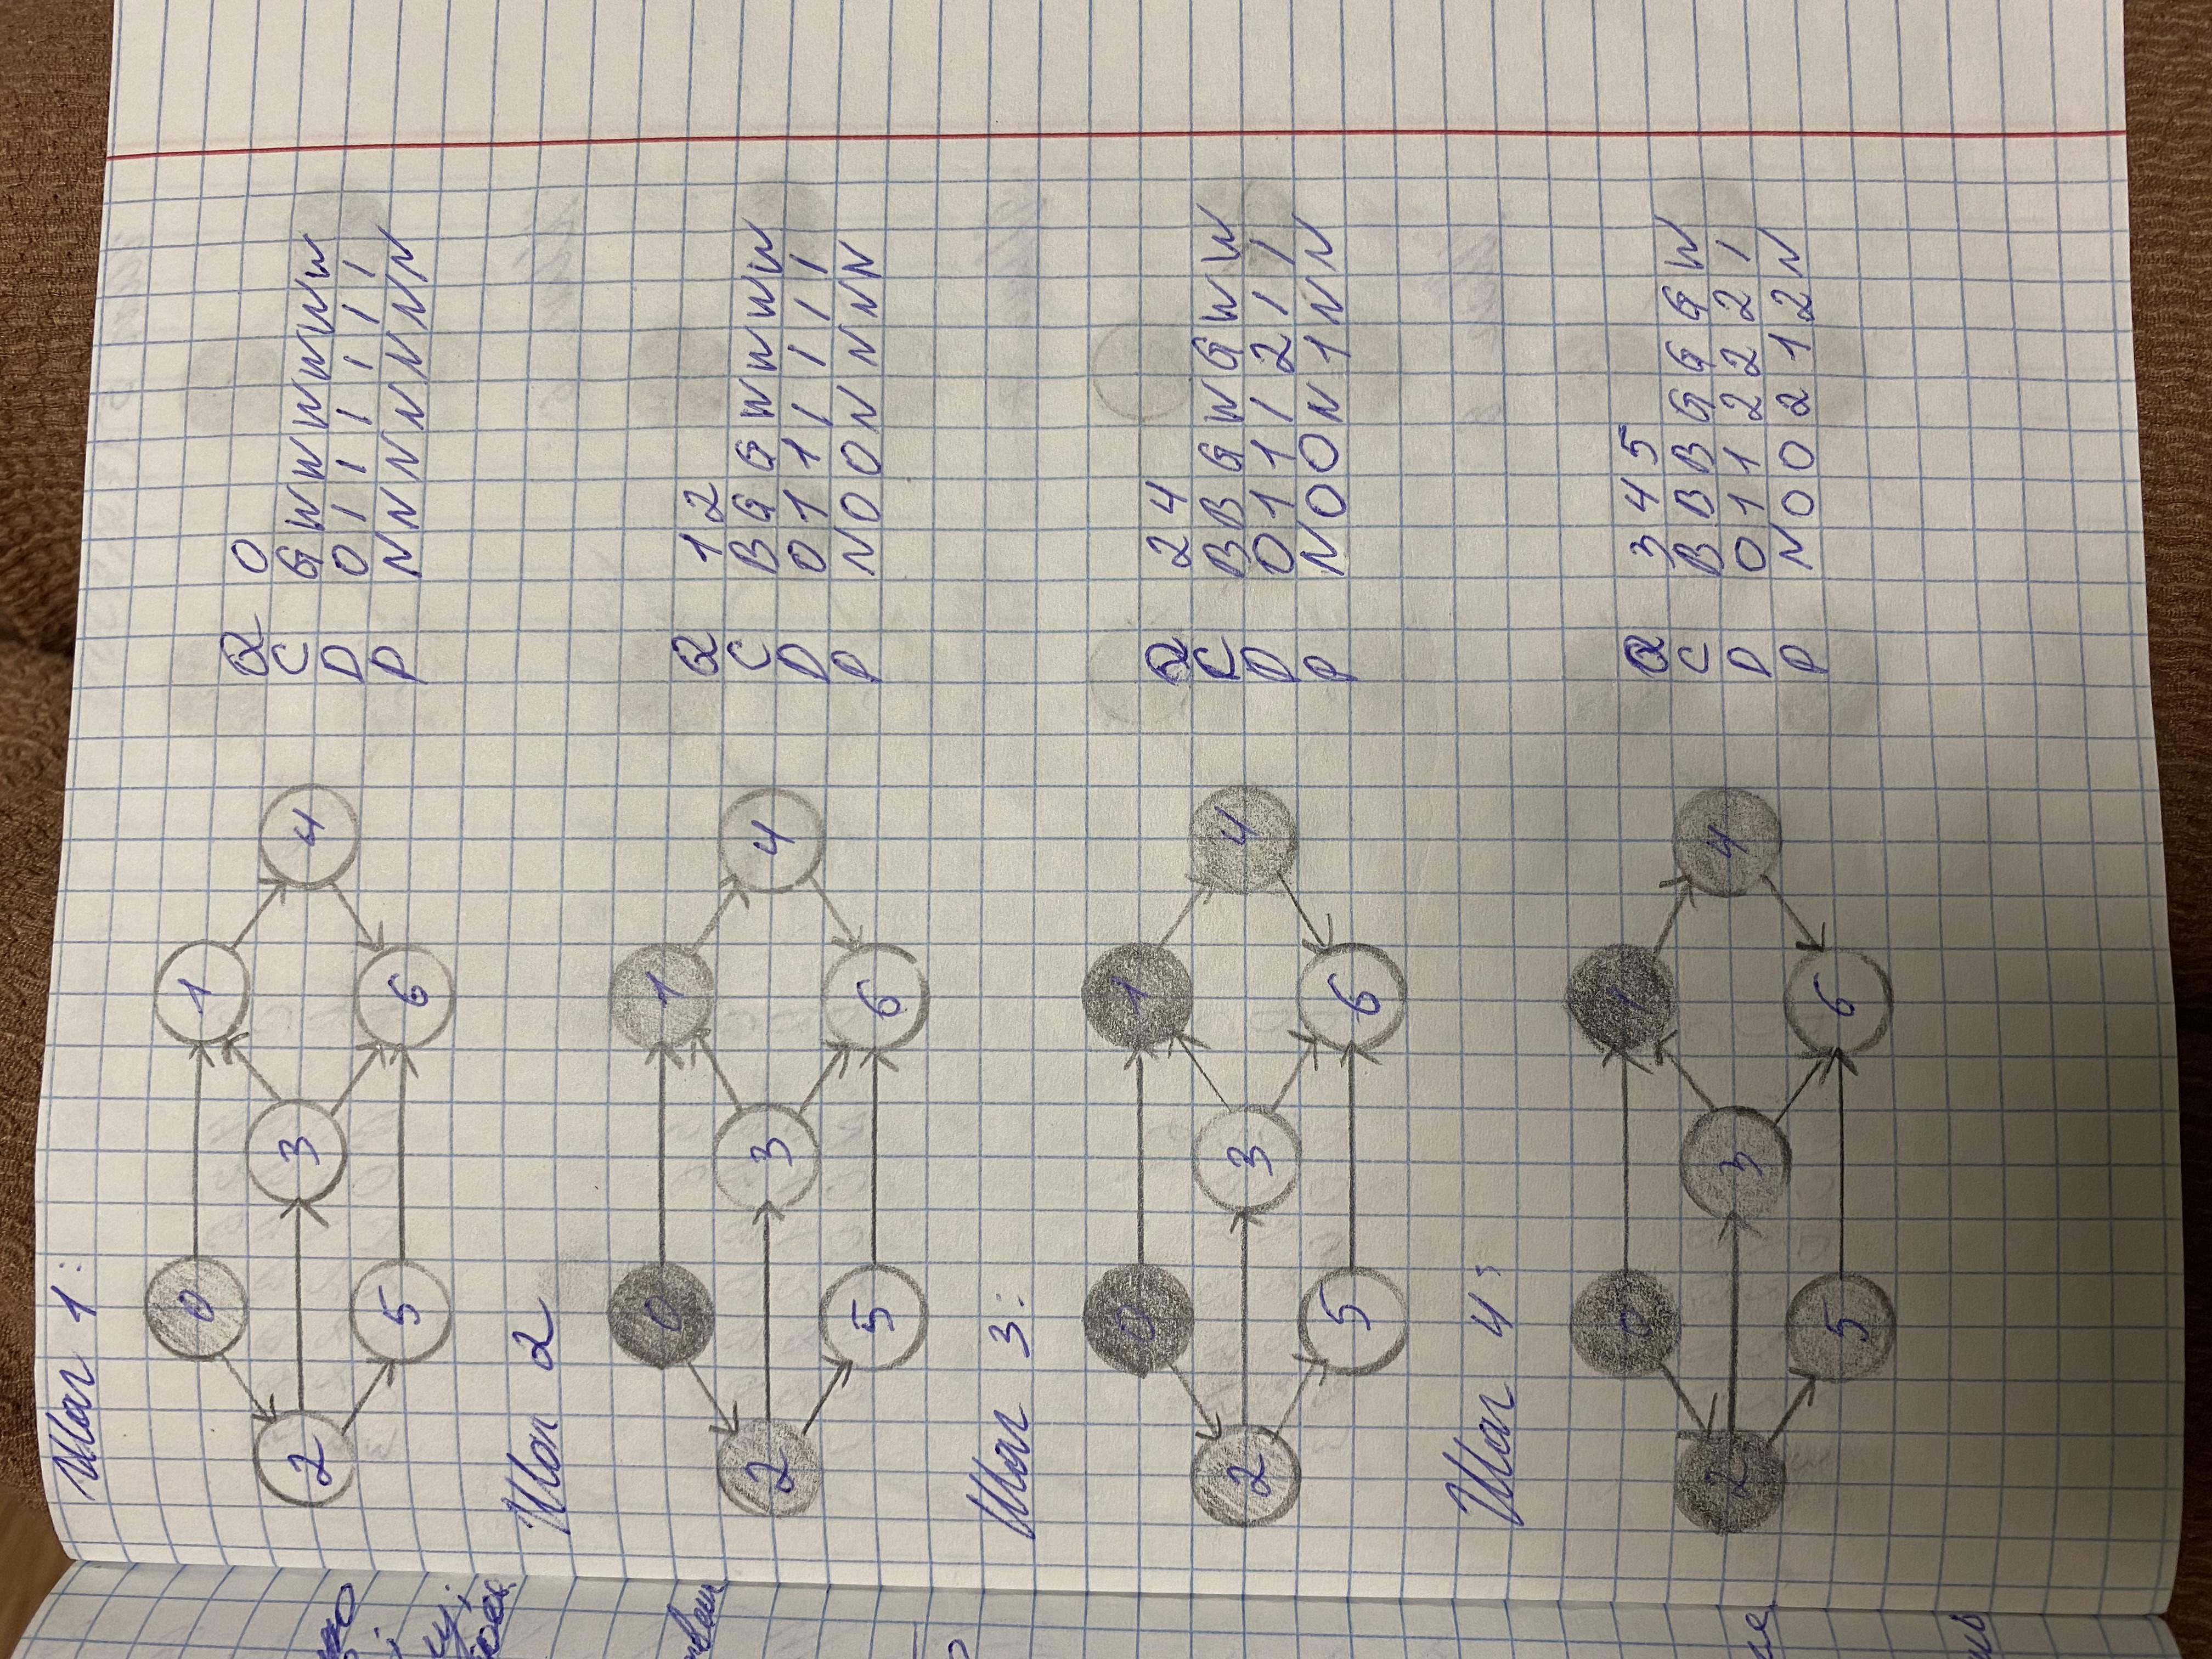 Шаг 1:
0 1
2 3 4
5 6
Q 0
C G W W W W W W
D 0 / / / / / /
P N N N N N N N
Шаг 2
0 1
2 3 4
5 6
Q 1 2
C B G G W W W W
D 0 1 1 / / / /
P N 0 0 N N N N
Шаг 3:
0 1
2 3 4
5 6
Q 2 4
C B B G W G W W
D 0 1 1 / 2 / /
P N 0 0 N 1 N N
Шаг 4:
0 1
2 3 4
5 6
Q 3 4 5
C B B B G G G W
D 0 1 1 2 2 2 /
P N 0 0 2 1 2 N